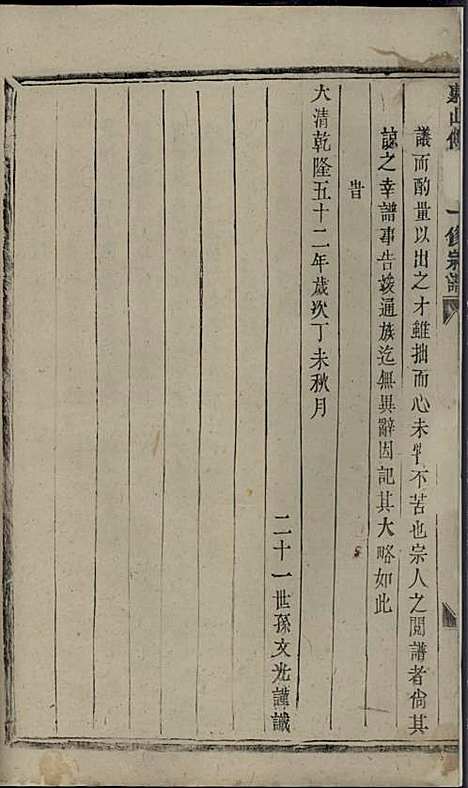 東山傅 一修宗譜
議而酌量以出之才雖拙而心未嘗不苦也宗人之閱譜者尚其
諒之幸譜事告竣通族迄無異辭因記其大略如此
旹
大清乾隆五十二年歲次丁未秋月
二十一世孫文光謹識